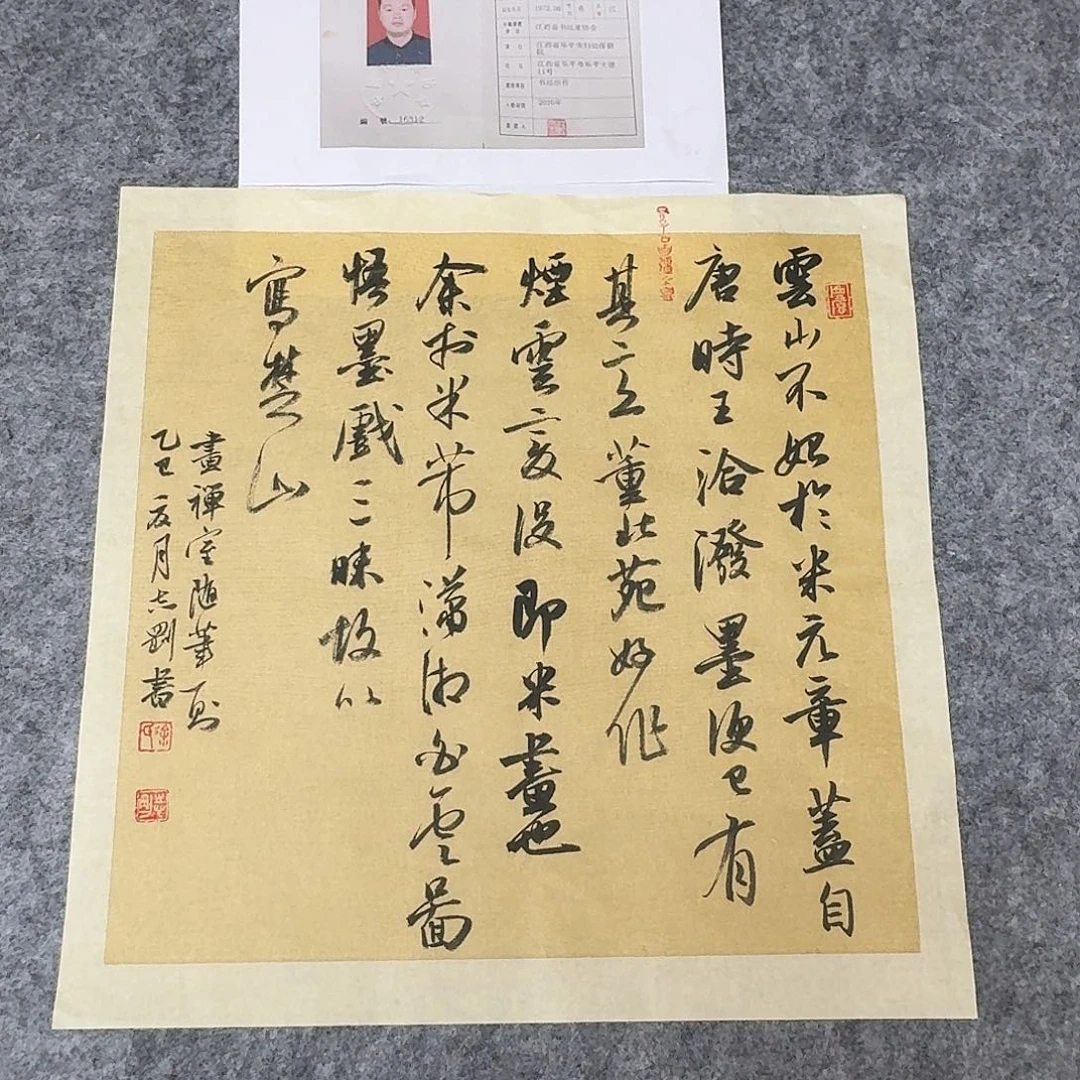 1972.08
江西省书法家协会
江西省乐平市妇幼保健
院
江西省乐平市乐平大道
书法创作
2016年
編 號
雲山不始於米元章蓋自
唐時王洽潑墨便已有
其意董北苑好作
煙雲變沒即米畫也
余於米芾瀟湘白雲圖
悟墨戲三昧故以
寫楚山
畫禪室隨筆一則
乙巳夏月志剛書